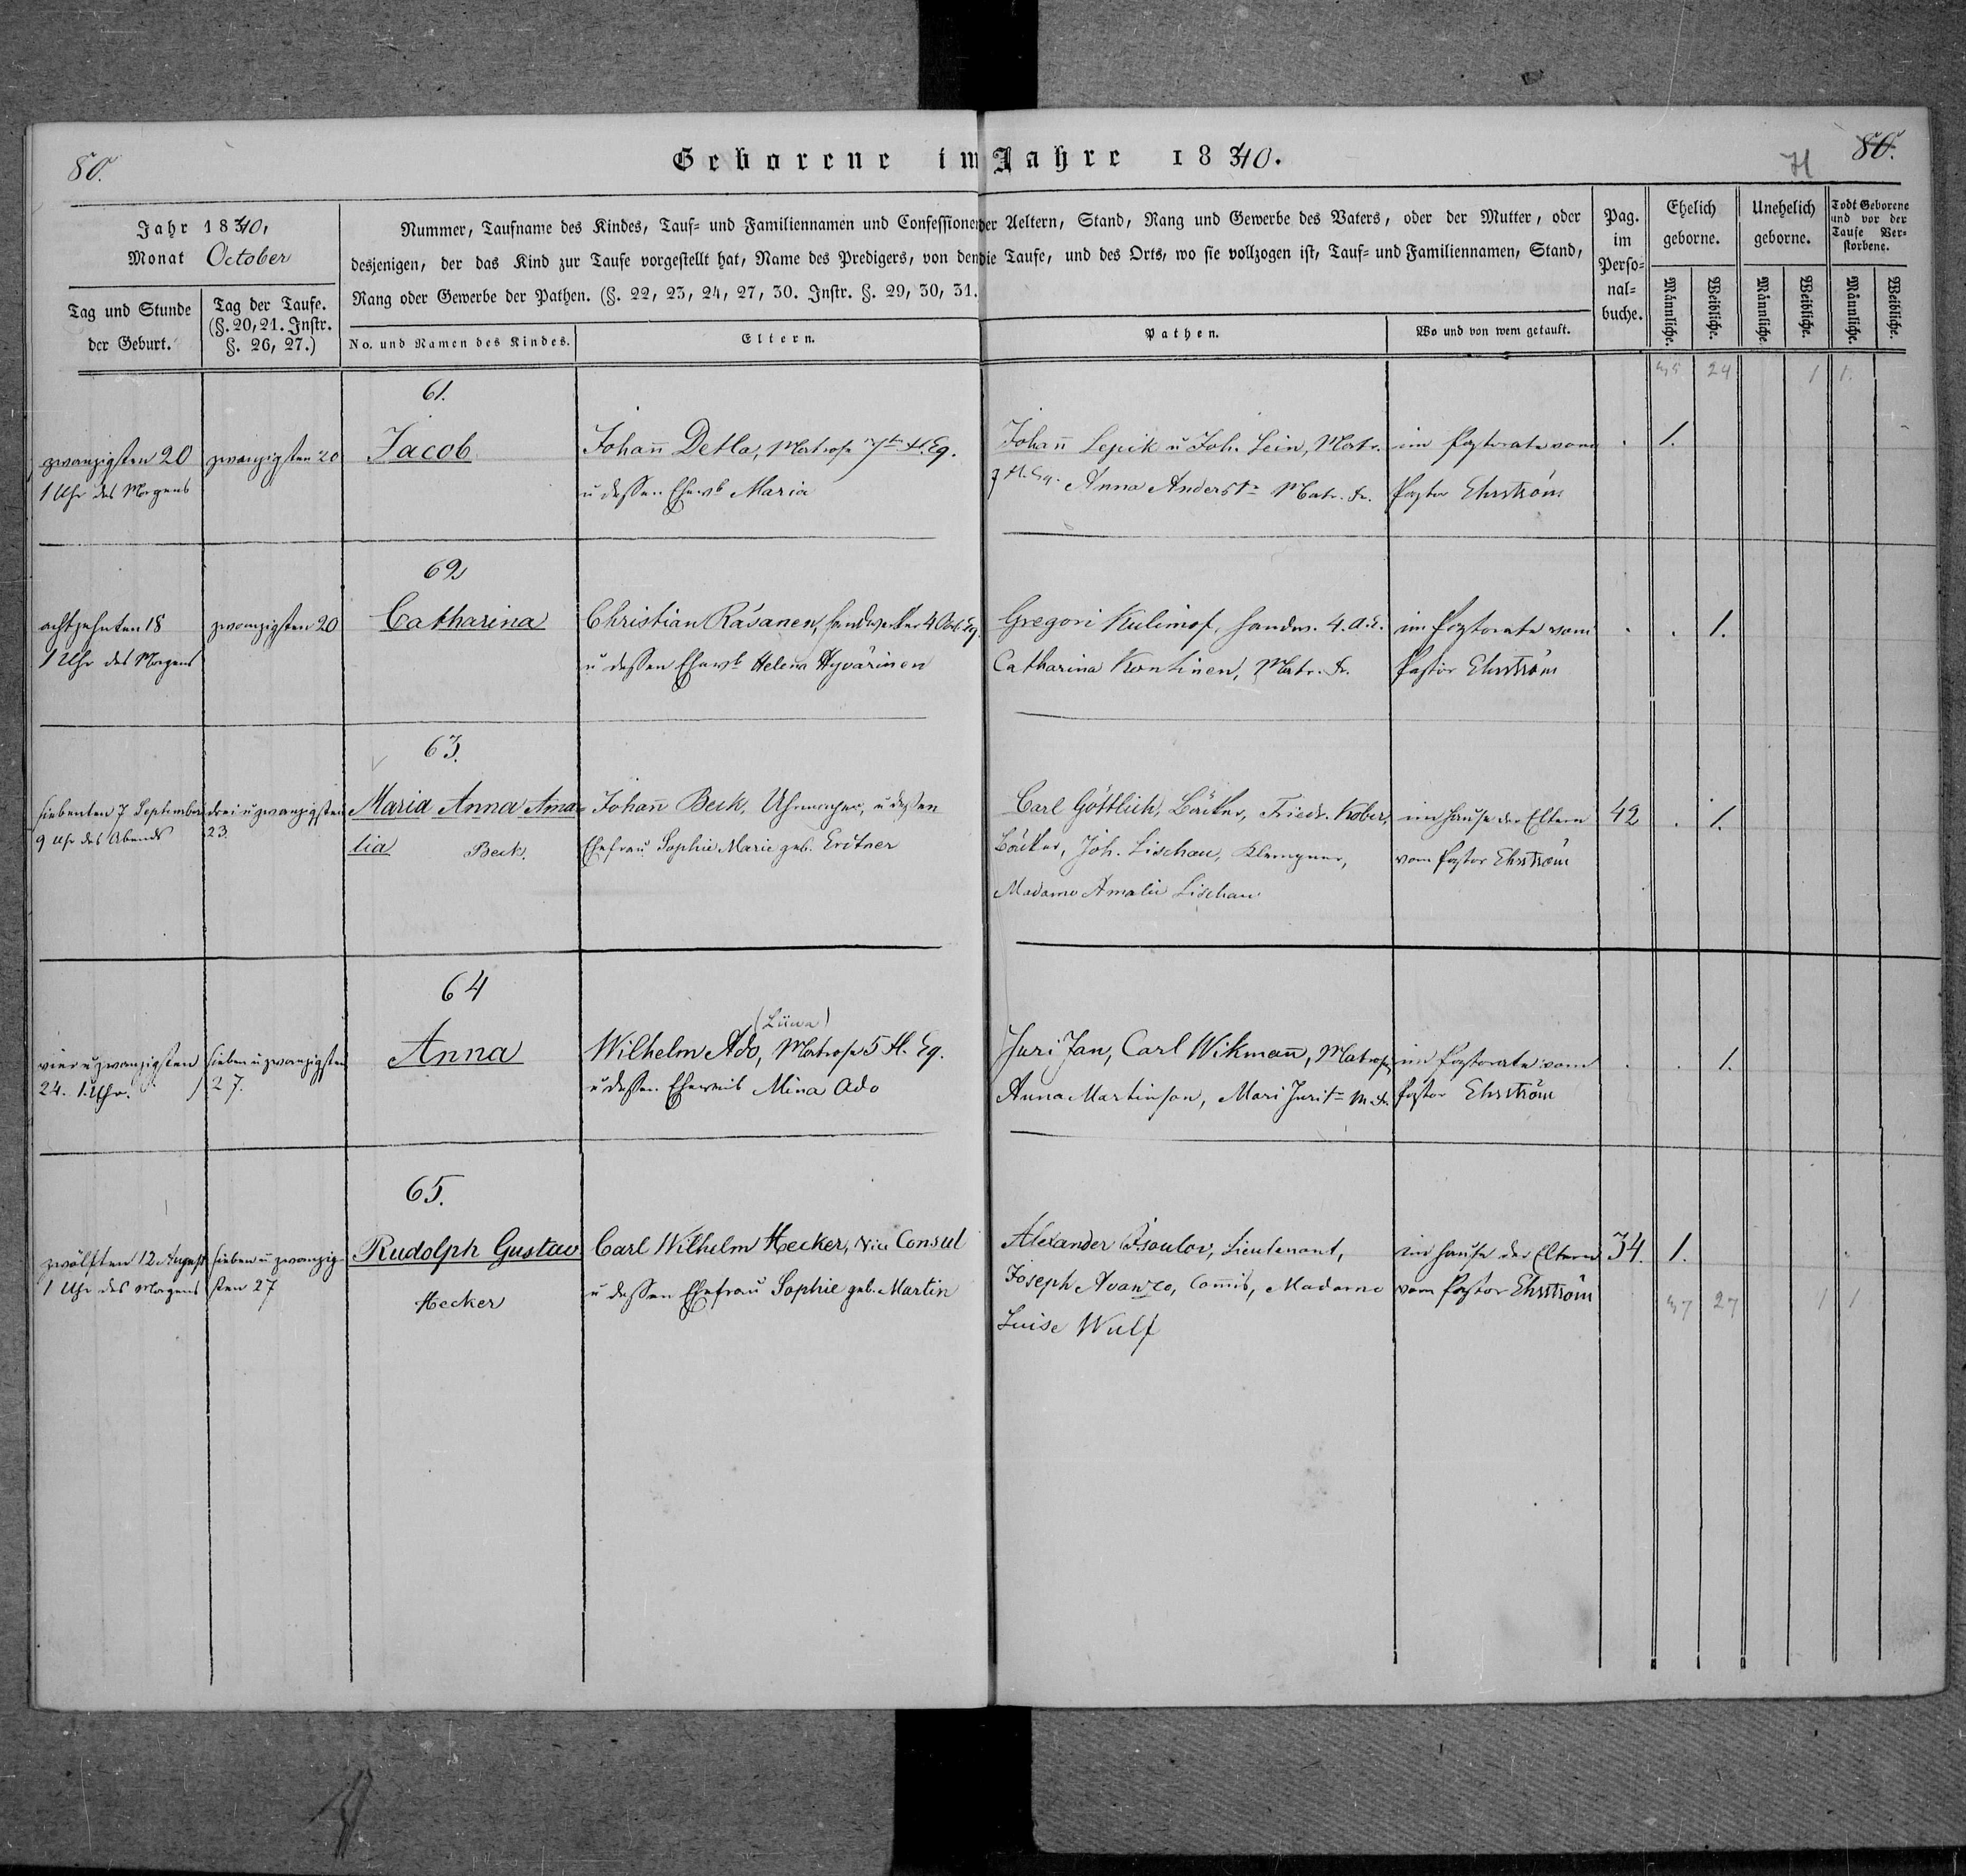 80.
Geborene im Jahre 1840.
71
80.
Jahr 1840,
Monat October
Nummer, Taufname des Kindes, Tauf- und Familiennamen und Confessionen der Aeltern, Stand, Rang und Gewerbe des Vaters, oder der Mutter, oder
desjenigen, der das Kind zur Taufe vorgestellt hat, Name des Predigers, von dem die Taufe, und des Orts, wo sie vollzogen ist, Tauf- und Familiennamen, Stand,
Rang oder Gewerbe der Pathen. (§. 22, 23, 24, 27, 30. Instr. §. 29, 30, 31.
Tag und Stunde
der Geburt.
Tag der Taufe.
(§. 20, 21. Instr.
§. 26, 27.)
No. und Namen des Kindes.
Eltern.
Pathen.
Wo und von wem getauft.
Pag.
im
Perso-
nal-
buche.
Ehelich
geborne.
Unehelich
geborne.
Todt Geborene
und vor der
Taufe Ver-
storbene.
Männliche.
Weibliche.
Männliche.
Weibliche.
Männliche.
Weibliche.
45 24 1 1.
61.
zwanzigsten 20
1 Uhr des Morgens
zwanzigsten 20
Jacob
Johan̄ Detlo, Matrose 7ten Fl. Eq.
u dessen Ehewb Maria
Johan̄ Lepik u Joh. Lein, Matr.
7 Fl. Eq. Anna Anderst= Matr. Fr.
im Pastorate vom
Pastor Ehrström
1.
62
achtzehnten 18
1 Uhr des Morgens
zwanzigsten 20
Catharina
Christian Räsänen, Handwerker 4 Arb. Eq.
u dessen Ehewb Helena Hyvärinen
Gregori Kulimof, Handw. 4. A. E.
Catharina Kontinen, Matr. Fr.
im Pastorate vom
Pastor Ehrström
1.
63.
siebenten 7 September
9 Uhr des Abends
drei u zwanzigsten
23.
Maria Anna Ama=
lia Beck.
Johan̄ Beck, Uhrmacher, u dessen
Ehefrau Sophie Marie geb. Erdtner
Carl Göttlich, Bäcker, Friedr. Kober,
Bäcker, Joh. Lischau, Klempner,
Madame Amalie Lischau
im Hause der Eltern
vom Pastor Ehrström
42 1.
64
vier u zwanzigsten
24. 1. Uhr.
sieben u zwanzigsten
27.
Anna
(Liiwa)
Wilhelm Ado, Matrose 5 Fl. Eq.
u dessen Eheweib Mina Ado
Juri Jan, Carl Wikman̄, Matrosen
Anna Martinson, Mari Jurit= M. Fr.
im Pastorate vom
Pastor Ehrström
1.
65.
zwölften 12. August
1 Uhr des Morgens
sieben u zwanzig-
sten 27
Rudolph Gustav
Hecker
Carl Wilhelm Hecker, Vice Consul
u dessen Ehefrau Sophie geb. Martin
Alexander Lieutenant,
Joseph Avanzo, Com̄is, Madame
Luise Wulf
im Hause der Eltern
vom Pastor Ehrström
34. 1.
47 27 1 1